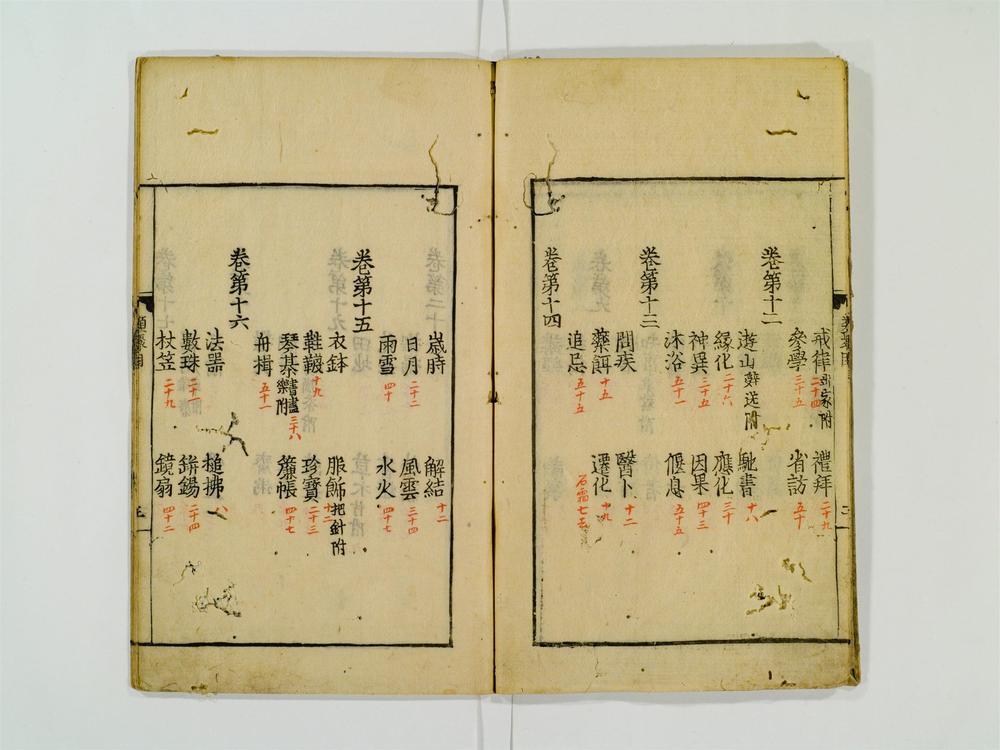 戒律 出家附 二十四 禮拜 二十九
參學 三十五 省訪 五十
卷第十二
遊山 辭送附 馳書 十八
緣化 二十六 應化 三十
神異 三十五 因果 四十三
沐浴 五十一 偃息 五十五
卷第十三
問疾 醫卜 十二
藥餌 十五 遷化 十九
追忌 五十五 石霜七去
卷第十四
歲時 解結 十二
日月 二十二 風雲 三十四
雨雪 四十 水火 四十七
卷第十五
衣鉢 服飾 把針附 十二
鞋韈 十九 珍寶 二十三
琴棊 附 三十八 簾帳 四十七
舟揖 五十一
卷第十六
法器 搥拂 八
數珠 二十一 鉼錫 二十四
杖笠 二十九 鏡扇 四十二